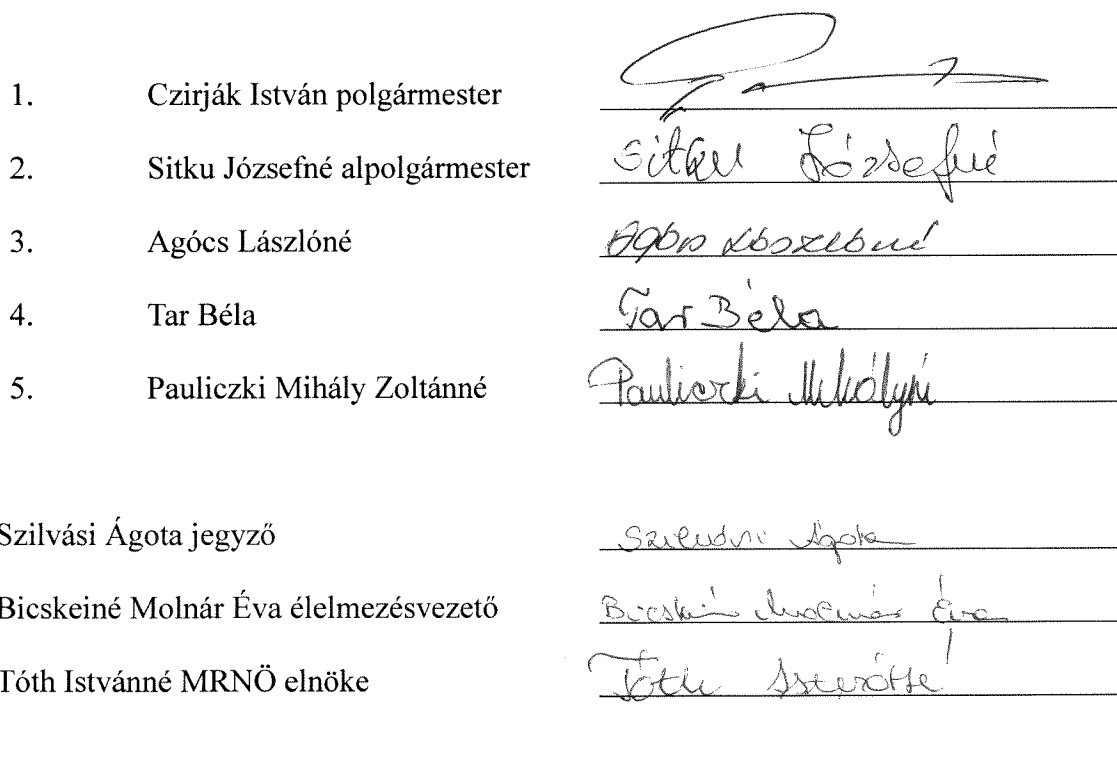 1. Czirják István polgármester
2. Sitku Józsefné alpolgármester Sitku Józsefné
3. Agócs Lászlóné
4. Tar Béla Tar Béla
5. Pauliczki Mihály Zoltánné Pauliczki Mihályné
Szilvási Ágota jegyző Szilvási Ágota
Bicskeiné Molnár Éva élelmezésvezető Bicskeiné Molnár Éva
Tóth Istvánné MRNÖ elnöke Tóth